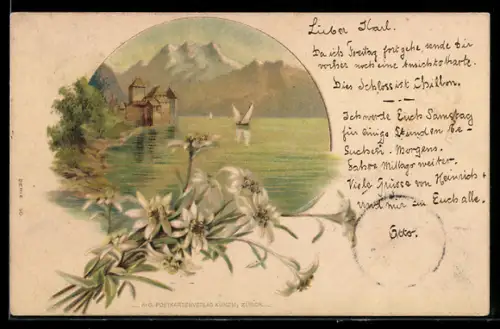 Lieber Karl.
Da ich Freitag fortgehe, sende Dir
vorher noch eine Ansichtskarte.
Dies Schloss ist Chillon.
Ich werde Euch Samstag
für einige Stunden be-
suchen. Morgens.
Fahre Mittags weiter.
Viele Grüsse von Heinrich +
und mir an Euch alle.
Otto.
POSTKARTENVERLAG KÜNZLI, ZÜRICH